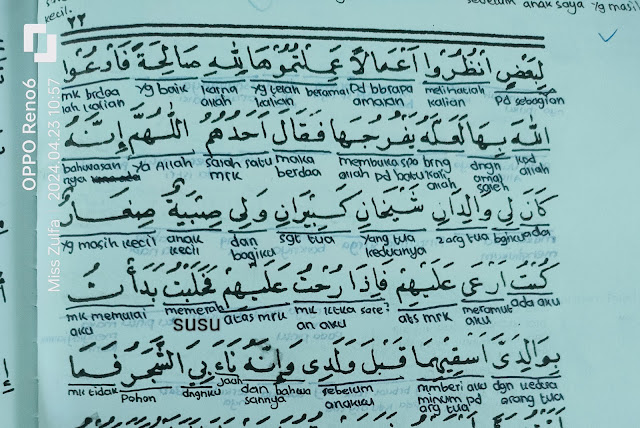 kecil.
sebelum anak saya yg masih
٢٢
لِبَعْضٍ انْظُرُوا أَعْمَالًا عَمِلْتُمُوهَا لِلّٰهِ صَالِحَةً فَادْعُوا
mk brdoa lah kalian yg baik karna allah yg telah kalian beramal pd bbrapa amalan melihatlah kalian pd sebagian
اللّٰهَ بِهَا لَعَلَّهُ يَفْرُجُهَا فَقَالَ أَحَدُهُمْ اللّٰهُمَّ إِنَّهُ
bahwasan nya ya Allah salah satu mrk maka berdoa membuka allah pd batu brng kali allah dngn amal soleh kpd allah
كَانَ لِي وَالِدَانِ شَيْخَانِ كَبِيْرَانِ وَلِي صِبْيَةٌ صِغَارٌ
yg masih kecil anak kecil dan bagiku sgt tua yang tua keduanya 2 arg tua bgiku ada
كُنْتُ ارْعَى عَلَيْهِمْ فَإِذَا رُحْتُ عَلَيْهِمْ فَحَلَبْتُ بَدَأْتُ
mk memulai aku memerah atas mrk mk ketika sore an aku ats mrk merawat aku ada aku
susu
بِوَالِدَيَّ أَسْقِيْهِمَا قَبْلَ وَلَدِى وَإِنَّهُ نَاءَ بِي الشَّجَرُ فَمَا
mk tidak pohon jauh dngnku dan bahwa sannya sebelum anakku memberi aku minum pd org tua dgn kedua orang tua
OPPO Reno6
Miss Zulfa 2024.04.23 10:57